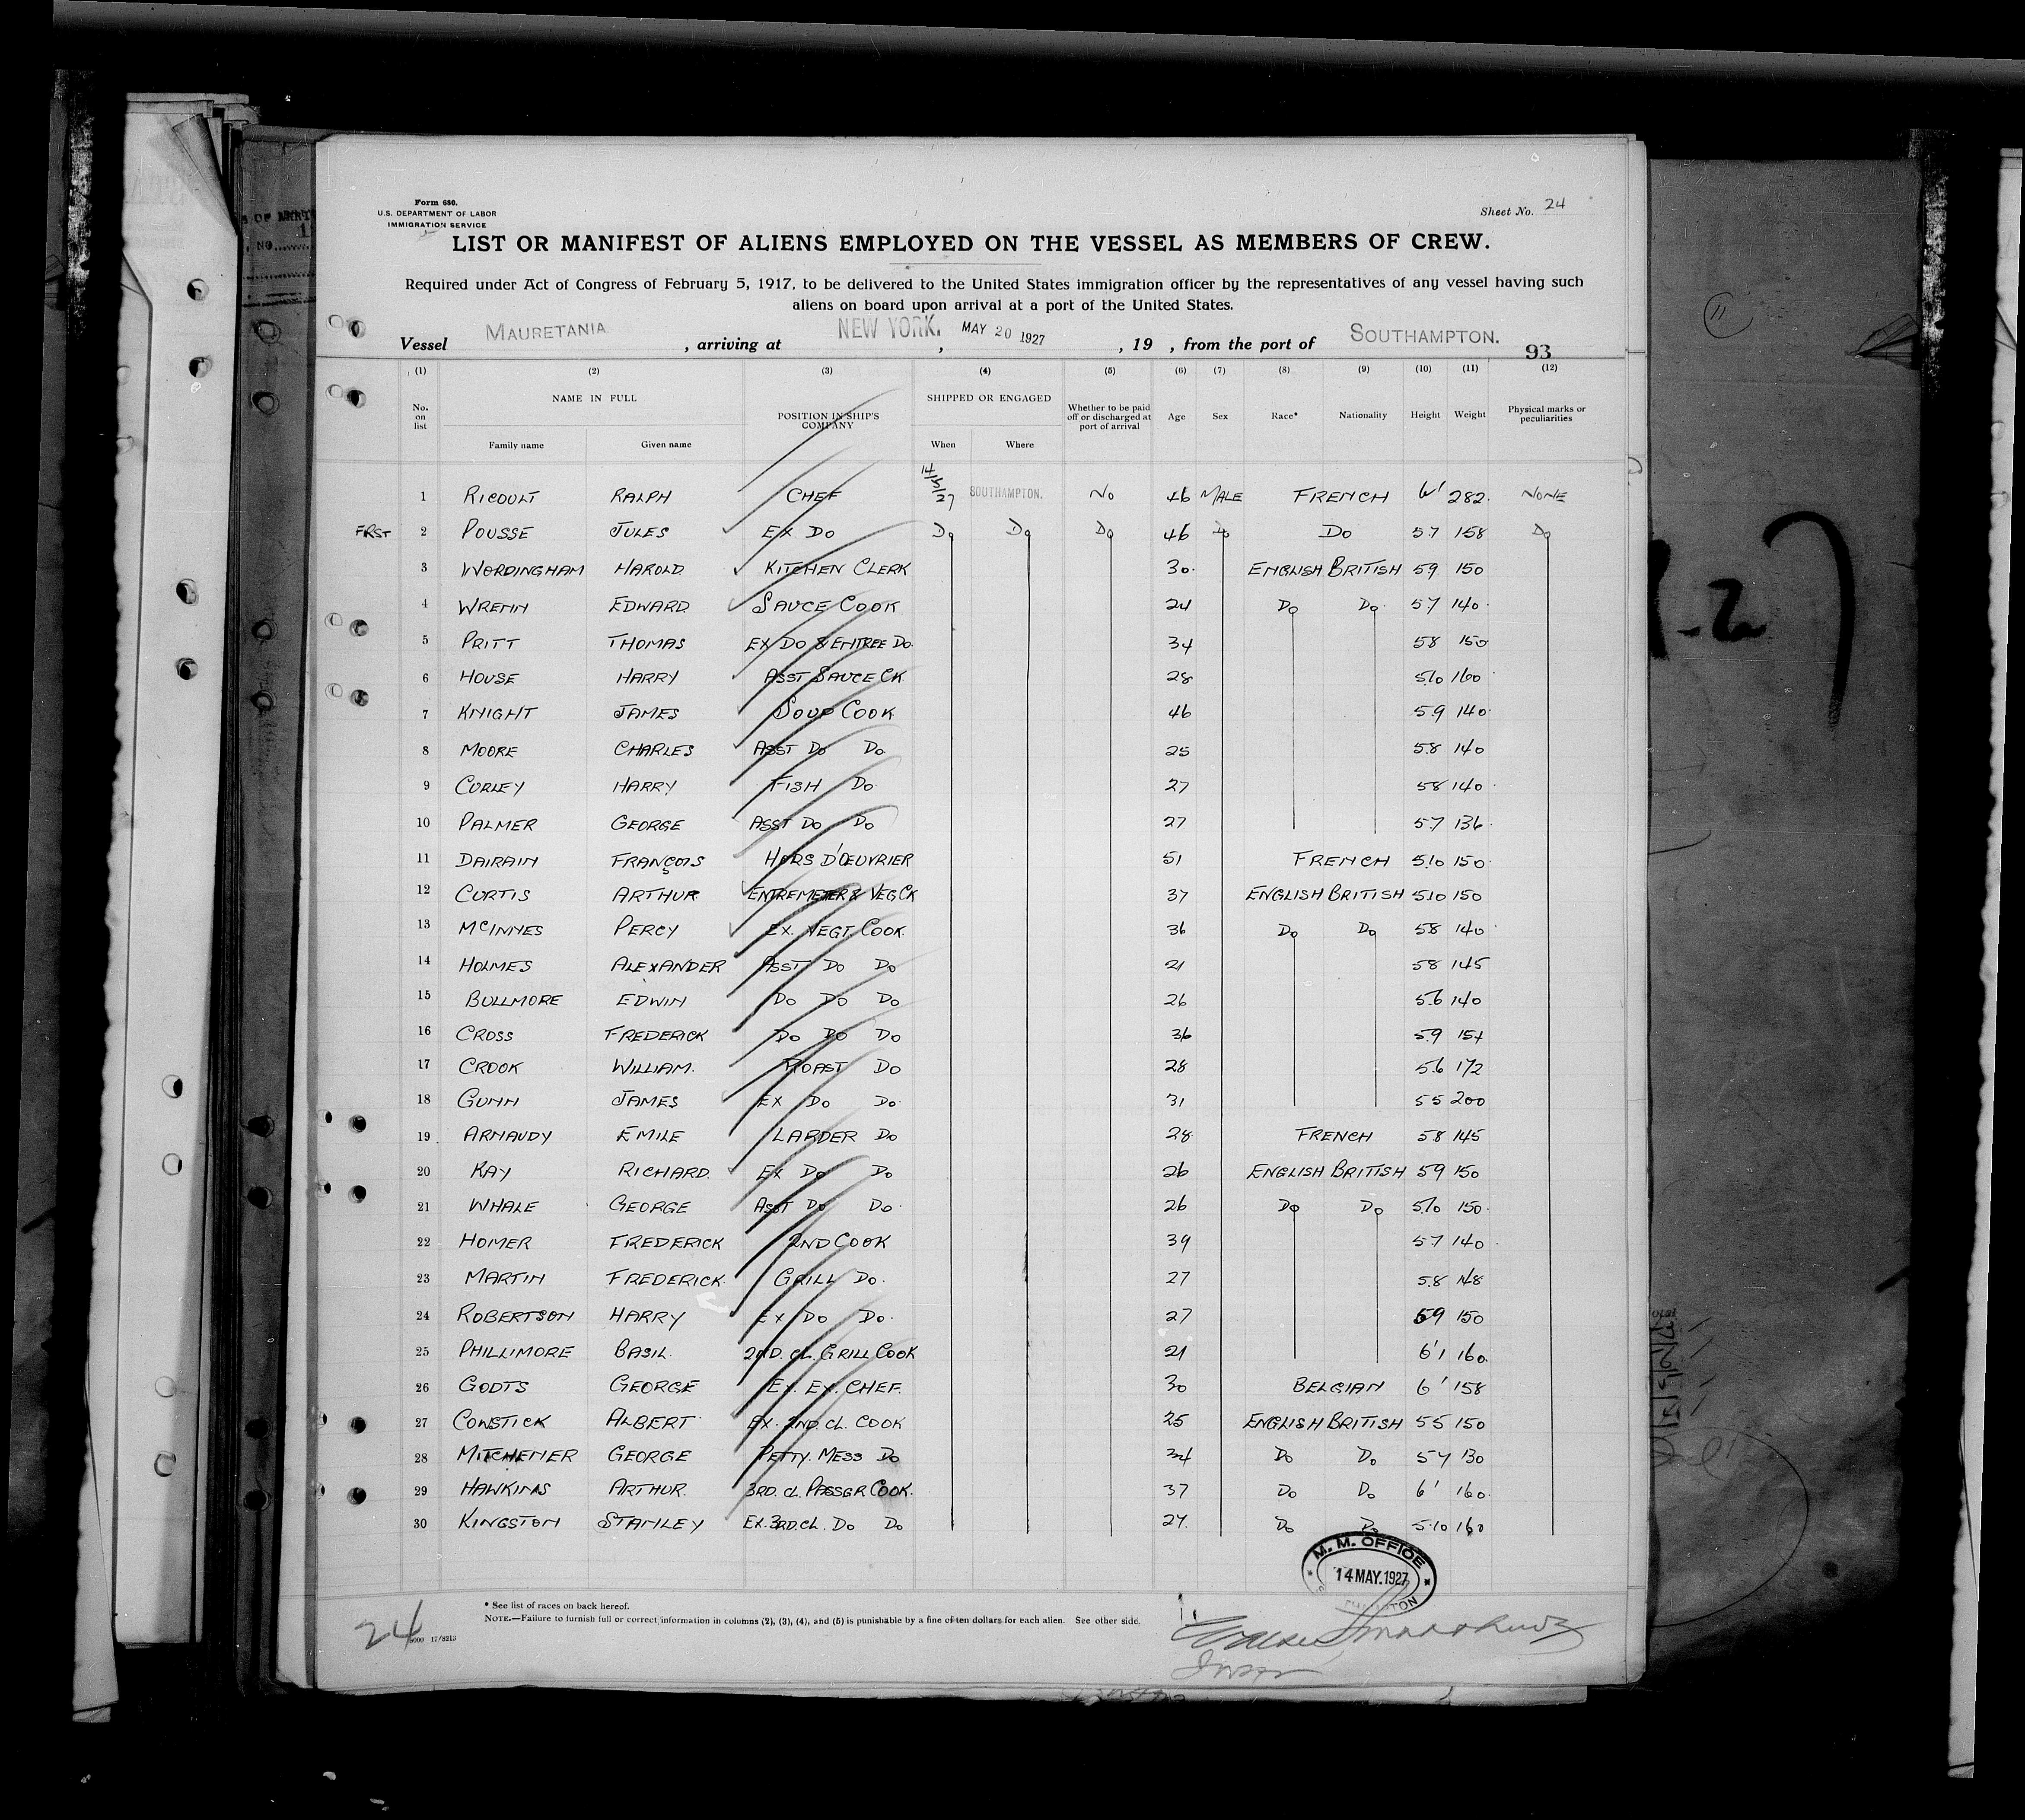 Form 680.
U.S. DEPARTMENT OF LABOR
IMMIGRATION SERVICE
Sheet No. 24
LIST OR MANIFEST OF ALIENS EMPLOYED ON THE VESSEL AS MEMBERS OF CREW.
Required under Act of Congress of February 5, 1917, to be delivered to the United States immigration officer by the representatives of any vessel having such
aliens on board upon arrival at a port of the United States.
Vessel MAURETANIA, arriving at NEW YORK, MAY 20 1927, 19 , from the port of SOUTHAMPTON.
93
(1) (2) (3) (4) (5) (6) (7) (8) (9) (10) (11) (12)
No. on list NAME IN FULL Family name Given name POSITION IN SHIP'S COMPANY SHIPPED OR ENGAGED When Where Whether to be paid off or discharged at port of arrival Age Sex Race* Nationality Height Weight Physical marks or peculiarities
1 RICOULT RALPH CHEF 14/5/27 SOUTHAMPTON. NO 46 MALE FRENCH 6' 282. NONE
FIRST 2 POUSSE JULES EX DO DO DO DO 46 DO DO 5.7 158 DO
3 WORDINGHAM HAROLD KITCHEN CLERK 30. ENGLISH BRITISH 59 150
4 WRENN EDWARD SAUCE COOK 24 DO DO. 57 140
5 PRITT THOMAS EX DO & ENTREE DO. 34 58 150
6 HOUSE HARRY ASST SAUCE CK 28 5.10 160
7 KNIGHT JAMES SOUP COOK 46 5.9 140
8 MOORE CHARLES ASST DO DO 25 5.8 140
9 CURLEY HARRY FISH DO 27 58 140
10 PALMER GEORGE ASST DO DO 27 5.7 136
11 DAIRAIN FRANÇOIS HORS D'OEUVRIER 51 FRENCH 5.10 150
12 CURTIS ARTHUR ENTREMETER & VEG CK 37 ENGLISH BRITISH 5.10 150
13 McINNES PERCY EX. VEGT. COOK. 36 DO DO 58 140
14 HOLMES ALEXANDER ASST DO DO 21 58 145
15 BULLMORE EDWIN DO DO DO 26 5.6 140
16 CROSS FREDERICK DO DO DO 36 5.9 154
17 CROOK WILLIAM. ROAST DO 28 5.6 172
18 GUNN JAMES EX DO DO. 31 55 200
19 ARNAUDY EMILE LARDER DO 28 FRENCH 58 145
20 KAY RICHARD. EX DO DO 26 ENGLISH BRITISH 59 150
21 WHALE GEORGE ASST DO DO. 26 DO DO 5.10 150
22 HOMER FREDERICK 2ND COOK 39 57 140
23 MARTIN FREDERICK. GRILL DO. 27 5.8 148
24 ROBERTSON HARRY EX DO DO. 27 59 150
25 PHILLIMORE BASIL. 2ND. CL. GRILL COOK 21 6'1 160.
26 GODTS GEORGE EX. EX. CHEF. 30 BELGIAN 6' 158
27 COWSTICK ALBERT EX. 2ND. CL. COOK 25 ENGLISH BRITISH 55 150
28 MITCHENER GEORGE PETTY. MESS DO 34 DO DO 130
29 HAWKINS ARTHUR 3RD. CL. PASSGR COOK. 37 DO DO 6' 160.
30 KINGSTON STANLEY EX. 3RD. CL. DO DO DO DO 5.10 160
M. M. OFFICE
14 MAY. 1927
* See list of races on back hereof.
NOTE.—Failure to furnish full or correct information in columns (2), (3), (4), and (5) is punishable by a fine of ten dollars for each alien. See other side.
24
17/8213